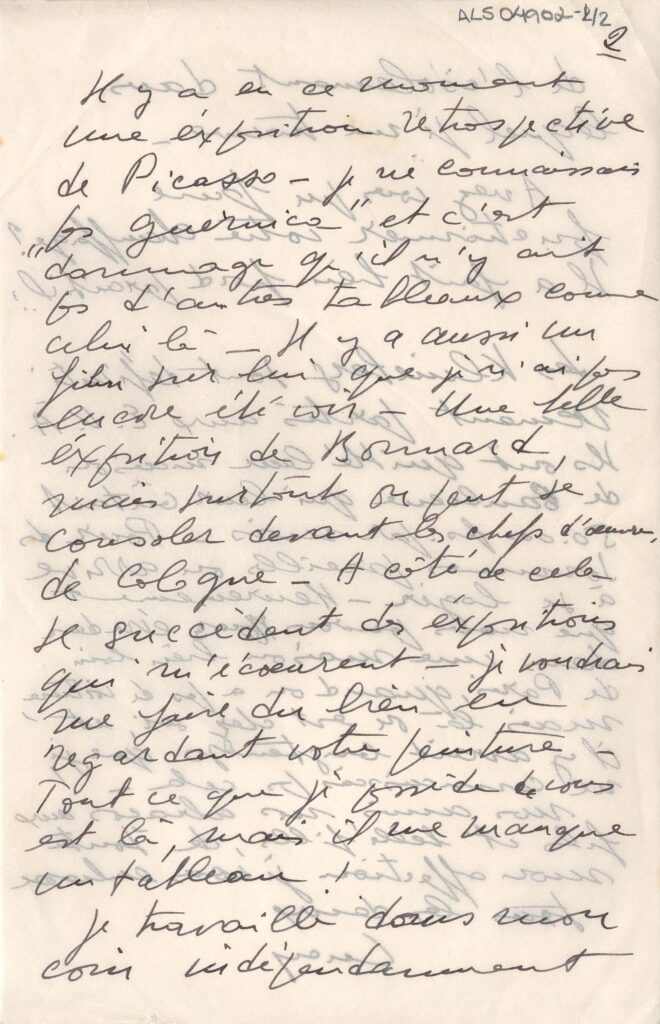 ALS 04902-2/2
2
Il y a en ce moment
une éxposition rétrospective
de Picasso — je ne connaissais
pas "guernica" et c'est
dommage qu'il n'y ait
pas d'autres tableaux comme
celui là — Il y a aussi un
film sur lui que je n'ai pas
encore été voir — Une belle
éxposition de Bonnard,
mais surtout on peut se
consoler devant les chefs d'œuvre,
de Cologne — A côté de cela
se succèdent des éxpositions
qui m'écoeurent — je voudrais
me faire du bien en
regardant votre peinture —
Tout ce que je possède de vous
est là, mais il me manque
un tableau !
Je travaille dans mon
coin indépendamment